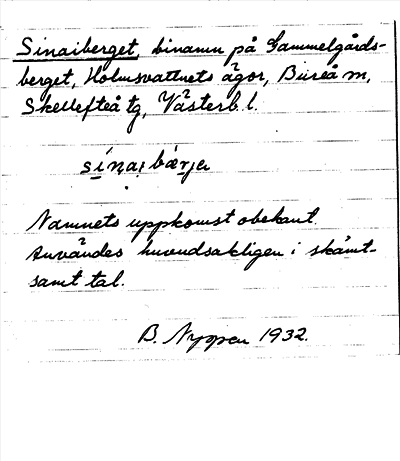 Sinaiberget, binamn på Gammelgårds-
berget, Holmsvattnets ägor, Bureå sn,
Skellefteå tg, Västerb. l.
sínai bærja
Namnets uppkomst obekant.
Användes huvudsakligen i skämt-
samt tal.
B. Nyppen 1932.